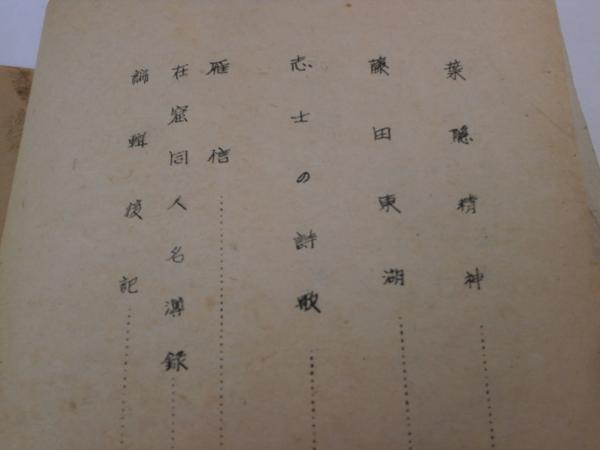 葉隠精神
藤田東湖
志士の詩歌
雁信
在窓同人名簿録
編輯後記